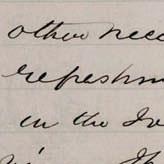 other nece
refreshm
in the